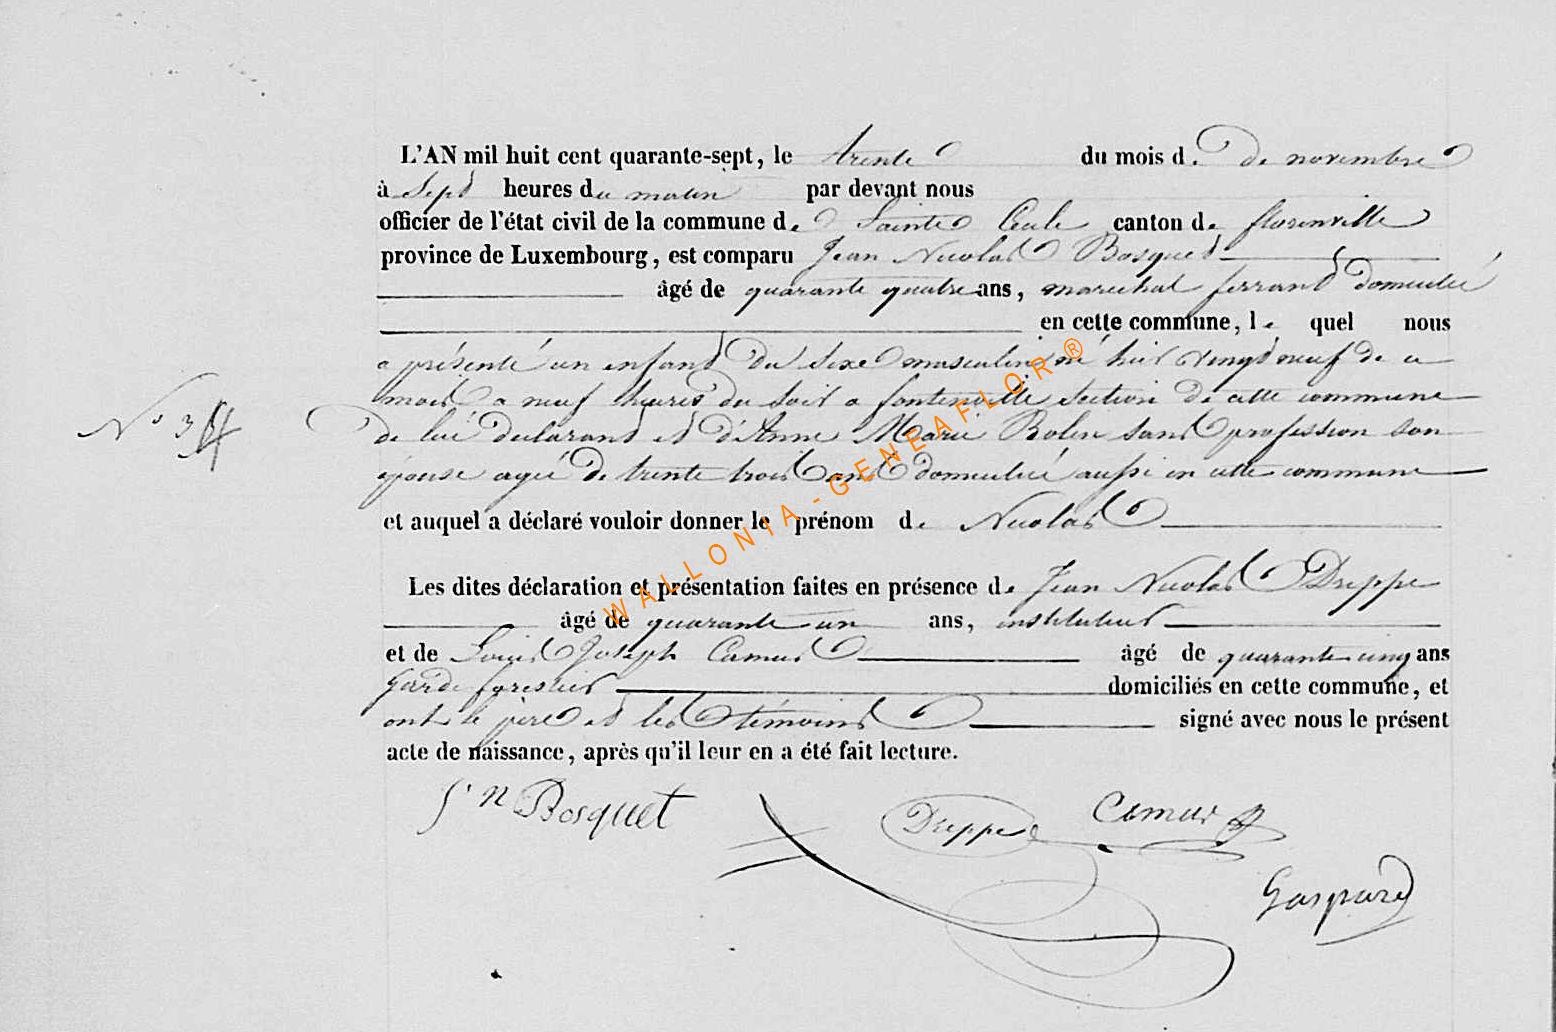 L'AN mil huit cent quarante-sept, le trente du mois de de novembre
à sept heures du matin par devant nous
officier de l'état civil de la commune de Sainte Cecile canton de florenville
province de Luxembourg, est comparu Jean Nicolas Bosquet
âgé de quarante quatre ans, marechal ferrand domicilié
en cette commune, le quel nous
a présenté un enfant du sexe masculin né hier vingt neuf de ce
mois a neuf heures du soir a fontenoille section de cette commune
N° 34
de lui declarant et d'Anne Marie Bolen sans profession son
épouse agée de trente trois ans domiciliée aussi en cette commune
et auquel a déclaré vouloir donner le prénom de Nicolas
Les dites déclaration et présentation faites en présence de Jean Nicolas Dreppe
âgé de quarante un ans, instituteur
et de Louis Joseph Camus âgé de quarante cinq ans
garde forestier domiciliés en cette commune, et
ont le père et les témoins signé avec nous le présent
acte de naissance, après qu'il leur en a été fait lecture.
J. n Bosquet Dreppe Camus
Gaspard
WALLONIA - GENEAFLOR ®